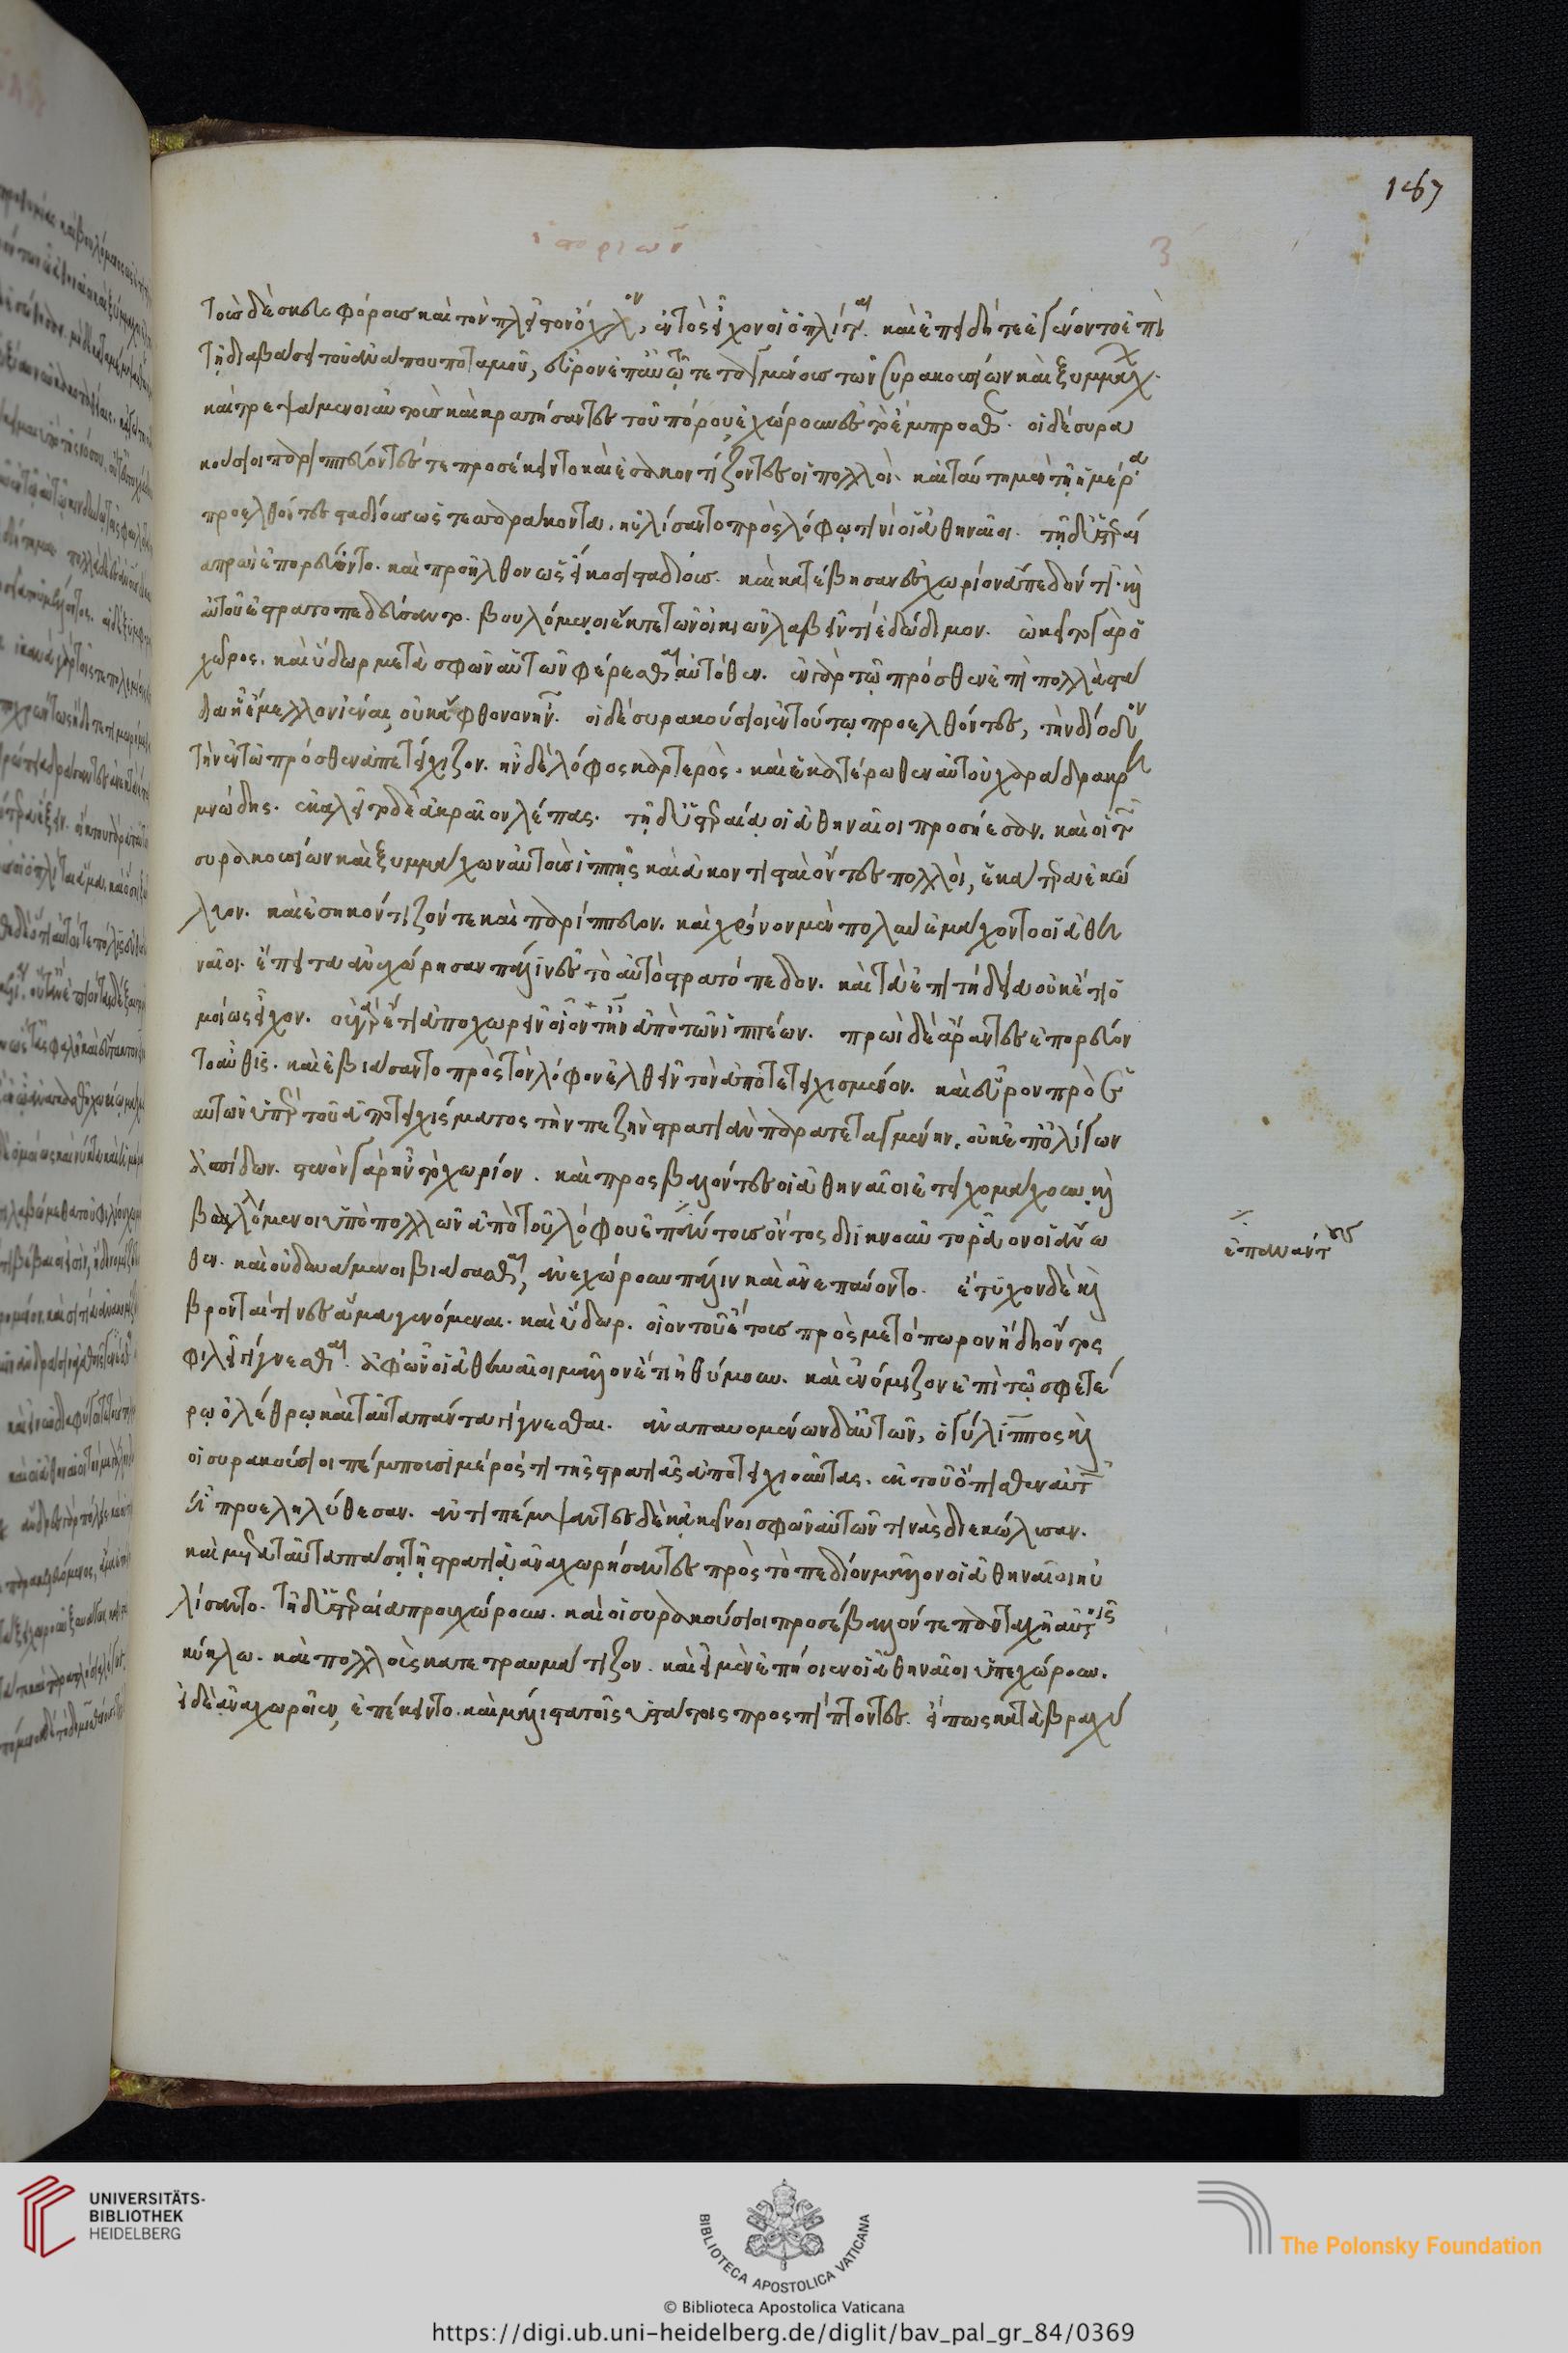 187
ἱστοριῶν
τοὺς δὲ σκευοφόρους καὶ τὸν πλεῖστον ὄχλον, ἐντὸς εἶχον οἱ ὁπλῖται. καὶ ἐπειδή τε ἐγένοντο ἐπὶ
τῇ διαβάσει τοῦ ἀνάπου ποταμοῦ, εὗρον ἐπ αὐτῷ τεταγμένους τῶν συρακοσίων καὶ ξυμμάχ.
καὶ τρεψάμενοι αὐτοὺς καὶ κρατήσαντες τοῦ πόρου ἐχώρουν ἐς τὸ ἔμπροσθ. οἱ δὲ συρα
κούσιοι παριππεύοντές τε προσέκειντο καὶ ἐσακοντίζοντες οἱ πολλοί. καὶ ταύτῃ μὲν τῇ ἡμέρα
προελθόντες σταδίους ὡς τεσσαράκοντα, ηὐλίσαντο πρὸς λόφῳ τινὶ οἱ ἀθηναῖοι. τῇ δ ὑστεραί
α πρωὶ ἐπορεύοντο. καὶ προῆλθον ὡς εἴκοσι σταδίους. καὶ κατέβησαν ἐς χωρίον ἄπεδόν τι. καὶ
αὐτοῦ ἐστρατοπεδεύσαντο. βουλόμενοι ἔκ τε τῶν οἰκιῶν λαβεῖν τι ἐδώδιμον. ὠκεῖτο γὰρ ὁ
χῶρος. καὶ ὕδωρ μετὰ σφῶν αὐτῶν φέρεσθαι αὐτόθεν. ἐν γὰρ τῷ πρόσθεν ἐπὶ πολλὰ στά
δια ᾗ ἔμελλον ἰέναι, οὐκ ἄφθονον ἦν. οἱ δὲ συρακούσιοι ἐν τούτῳ προελθόντες, τὴν δίοδον
τὴν ἐν τῷ πρόσθεν ἀπετείχιζον. ἦν δὲ λόφος καρτερὸς. καὶ ἑκατέρωθεν αὐτοῦ χαράδρα κρη
μνώδης. ἐκαλεῖτο δὲ ἀκραῖον λέπας. τῇ δ ὑστεραίᾳ οἱ ἀθηναῖοι προσῄεσαν. καὶ οἱ τῶν
συρακοσίων καὶ ξυμμάχων αὐτοὺς ἱππῆς καὶ ἀκοντισταὶ ὄντες πολλοὶ, ἑκατέρα ἐκώ
λυον. καὶ ἐσηκόντιζόν τε καὶ παρίππευον. καὶ χρόνον μὲν πολὺν ἐμάχοντο οἱ ἀθη
ναῖοι. ἔπειτα ἀνεχώρησαν πάλιν ἐς τὸ αὐτὸ στρατόπεδον. καὶ τὰ ἐπιτήδεια οὐκέτι ὁ
μοίως εἶχον. οὐ γὰρ ἔτι ἀποχωρεῖν οἷόν τ ἦν ἀπὸ τῶν ἱππέων. πρωὶ δὲ ἄραντες ἐπορεύον
το αὖθις. καὶ ἐβιάσαντο πρὸς τὸν λόφον ἐλθεῖν τὸν ἀποτετειχισμένον. καὶ εὗρον πρὸ ἑ
αυτῶν ὑπὲρ τοῦ ἀποτειχίσματος τὴν πεζὴν στρατιὰν παρατεταγμένην, οὐκ ἐπ ὀλίγων
ἀσπίδων. στενὸν γὰρ ἦν τὸ χωρίον. καὶ προσβαλόντες οἱ ἀθηναῖοι ἐτειχομάχουν. καὶ
βαλλόμενοι ὑπὸ πολλῶν ἀπὸ τοῦ λόφου ἐπάντους ὄντος διικνοῦντο ῥᾷον οἱ ἄνω
θεν. καὶ οὐ δυνάμενοι βιάσασθαι, ἀνεχώρουν πάλιν καὶ ἀνεπαύοντο. ἔτυχον δὲ καὶ
βρονταί τινες ἅμα γενόμεναι. καὶ ὕδωρ. οἷον τοῦ ἔτους πρὸς μετόπωρον ἤδη ὄντος
φιλεῖ γίγνεσθαι. ἀφ ὧν οἱ ἀθηναῖοι μᾶλλον ἔτι ἠθύμουν. καὶ ἐνόμιζον ἐπὶ τῷ σφετέ
ρῳ ὀλέθρῳ καὶ ταῦτα πάντα γίγνεσθαι. ἀναπαυομένων δ αὐτῶν, ὁ γύλιππος καὶ
οἱ συρακούσιοι πέμπουσι μέρος τι τῆς στρατιᾶς ἀποτειχιοῦντας. ἐκ τοῦ ὄπισθεν αὐτοὺς
ᾗ προεληλύθεσαν. ἀντιπέμψαντες δὲ κἀκεῖνοι σφῶν αὐτῶν τινὰς διεκώλυσαν.
καὶ μετὰ ταῦτα πάσῃ τῇ στρατιᾷ ἀναχωρήσαντες πρὸς τὸ πεδίον μᾶλλον οἱ ἀθηναῖοι ηὐ
λίσαντο. τῇ δ ὑστεραία προυχώρουν. καὶ οἱ συρακούσιοι προσέβαλλόν τε πανταχῇ αὐτοῖς
κύκλω. καὶ πολλοὺς κατετραυμάτιζον. καὶ εἰ μὲν ἐπίοιεν οἱ ἀθηναῖοι ὑπεχώρουν.
εἰ δὲ ἀναχωροῖεν, ἐπέκειντο. καὶ μάλιστα τοῖς ὑστάτοις προσπίπτοντες. εἴ πως κατὰ βραχὺ
ἐπάναντες
UNIVERSITÄTS-
BIBLIOTHEK
HEIDELBERG
BIBLIOTECA APOSTOLICA VATICANA
The Polonsky Foundation
© Biblioteca Apostolica Vaticana
https://digi.ub.uni-heidelberg.de/diglit/bav_pal_gr_84/0369